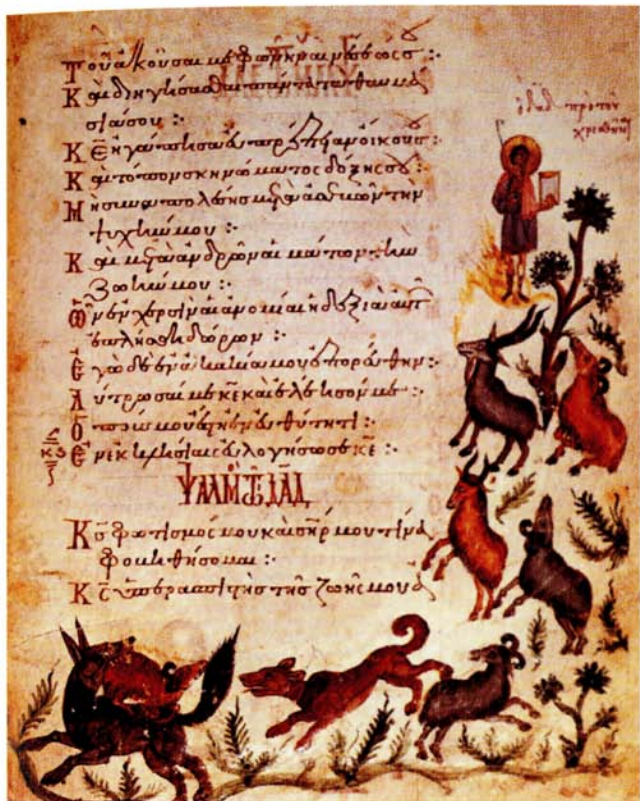 Τοῦ ἀκοῦσαι με φωνῆς αινέσεώς σου :·
Και διηγήσασθαι πάντα τα θαυμά
σια σου :·
Κ̅Ε̅ ηγάπησα ευπρέπειαν οίκου σου
Και τόπον σκηνώματος δόξης σου :·
Μη συναπολέσης μετα ασεβων την
ψυχήν μου :·
Και μετα ανδρων αιμάτων την
ζωήν μου :·
Ὧν εν χερσιν αι ανομίαι η δεξια αυτ
επλήσθη δώρων :·
Εγω δε εν ακακία μου επορεύθην :·
Λύτρωσαί με κ̅ε̅ και ελέησόν με :·
Ο πους μου έστη εν ευθύτητι :·
Εν εκκλησίαις ευλογήσω σε κ̅ε̅ :·
ΨΑΛΜ ΤΩ ΔΑΔ
Κ̅ς̅ φωτισμός μου και σ̅η̅ρ̅ μου τίνα
φοβηθήσομαι :·
Κ̅ς̅ υπερασπιστης της ζωης μου α
ὁ Δαδ προ του
χρισθηναι
κς